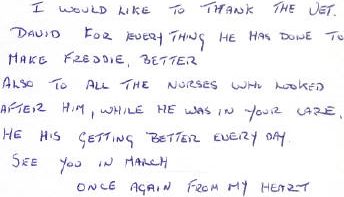 I WOULD LIKE TO THANK THE VET.
DAVID FOR EVERYTHING HE HAS DONE TO
MAKE FREDDIE, BETTER
ALSO TO ALL THE NURSES WHO LOOKED
AFTER HIM, WHILE HE WAS IN YOUR CARE.
HE HIS GETTING BETTER EVERY DAY.
SEE YOU IN MARCH
ONCE AGAIN FROM MY HEART